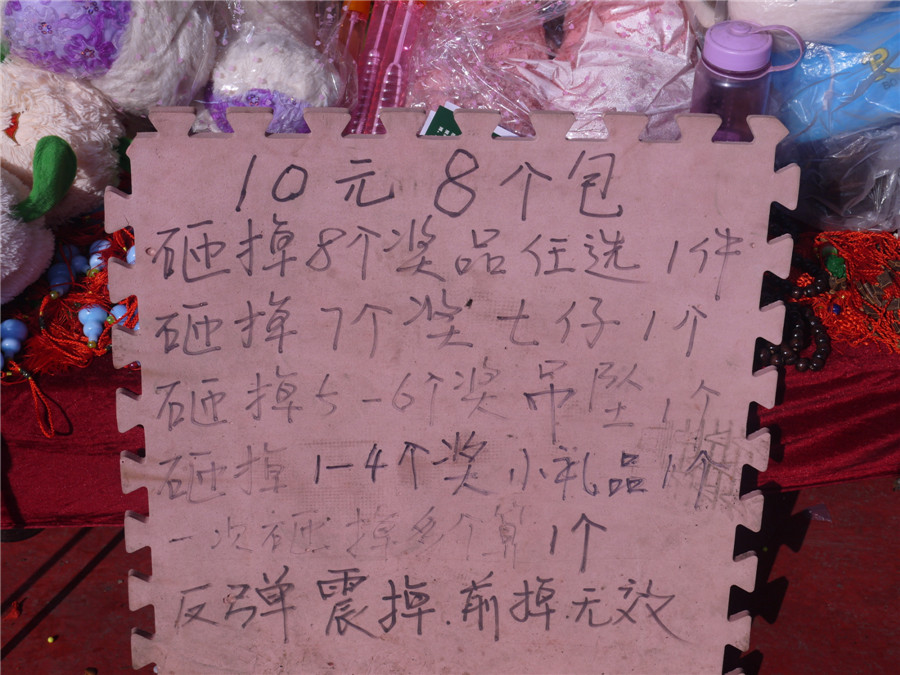 10元8个包
砸掉8个奖品任选1件
砸掉7个奖七仔1个
砸掉5-6个奖吊坠1个
砸掉1-4个奖小礼品1个
一次砸掉多个算1个
反弹震掉.前掉.无效